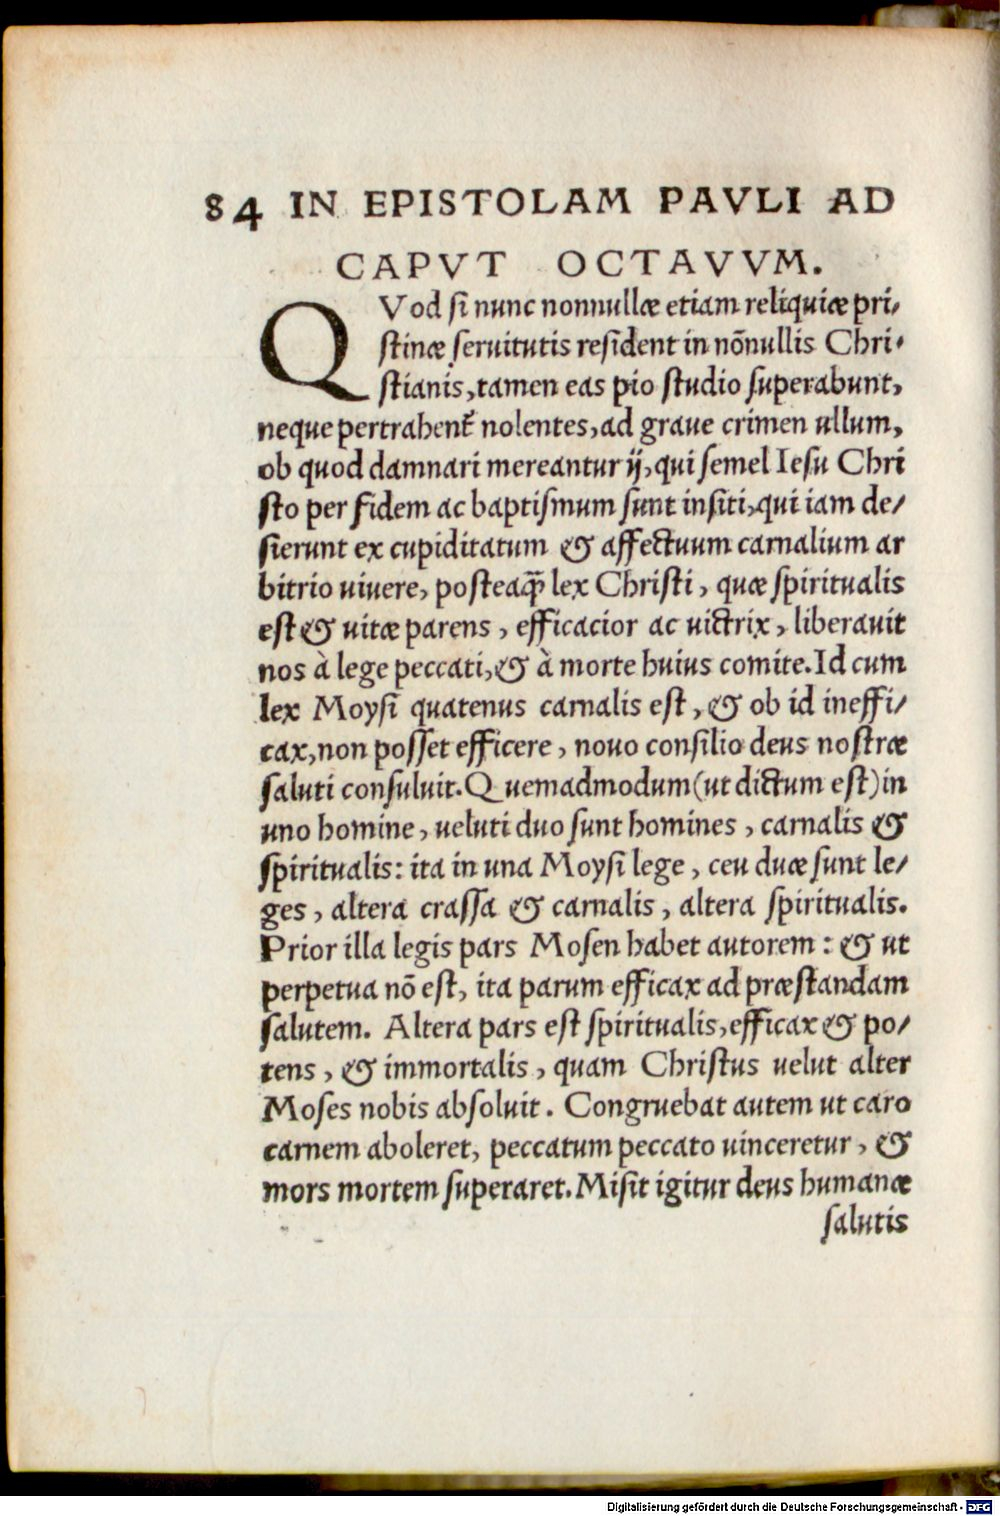 84 IN EPISTOLAM PAVLI AD
CAPVT OCTAVVM.
QVod ſi nunc nonnullæ etiam reliquiæ pri-
ſtinæ ſeruitutis reſident in nōnullis Chri-
ſtianis, tamen eas pio ſtudio ſuperabunt,
neque pertrahent᷑ nolentes, ad graue crimen ullum,
ob quod damnari mereantur ij, qui ſemel Ieſu Chri
ſto per fidem ac baptiſmum ſunt inſiti, qui iam de-
ſierunt ex cupiditatum & affectuum carnalium ar
bitrio uiuere, poſteaq̃ lex Chriſti, quæ ſpiritualis
eſt & uitæ parens, efficacior ac uictrix, liberauit
nos à lege peccati, & à morte huius comite. Id cum
lex Moyſi quatenus carnalis eſt, & ob id ineffi-
cax, non poſſet efficere, nouo conſilio deus noſtræ
ſaluti conſuluit. Quemadmodum (ut dictum eſt) in
uno homine, ueluti duo ſunt homines, carnalis &
ſpiritualis: ita in una Moyſi lege, ceu duæ ſunt le-
ges, altera craſſa & carnalis, altera ſpiritualis.
Prior illa legis pars Moſen habet autorem: & ut
perpetua nō eſt, ita parum efficax ad præſtandam
ſalutem. Altera pars eſt ſpiritualis, efficax & po-
tens, & immortalis, quam Chriſtus uelut alter
Moſes nobis abſoluit. Congruebat autem ut caro
carnem aboleret, peccatum peccato uinceretur, &
mors mortem ſuperaret. Miſit igitur deus humanæ
ſalutis
Digitalisierung gefördert durch die Deutsche Forschungsgemeinschaft - DFG